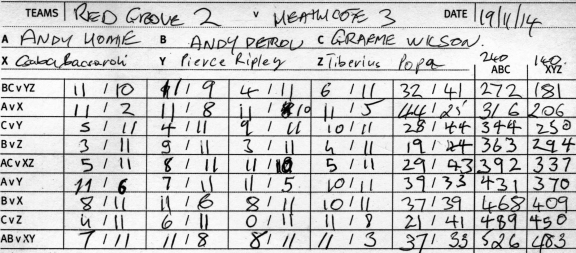 TEAMS RED GROVE 2 v HEATHCOTE 3 DATE 19/11/14
A ANDY HOMIE B ANDY DETROU C GRAEME WILSON.
X Bacciardi Y Pierce Ripley Z Tiberius Popa 240 ABC 140 XYZ
BCvYZ 11 / 10 11 / 9 4 / 11 6 / 11 32 / 41 272 181
AvX 11 / 2 11 / 8 11 / 10 11 / 5 44 / 25 316 206
CvY 5 / 11 4 / 11 9 / 11 10 / 11 28 / 44 344 250
BvZ 3 / 11 9 / 11 3 / 11 4 / 11 19 / 44 363 294
ACvXZ 5 / 11 8 / 11 11 / 10 5 / 11 29 / 43 392 337
AvY 11 / 6 7 / 11 11 / 5 10 / 11 39 / 33 431 370
BvX 8 / 11 11 / 6 8 / 11 10 / 11 37 / 39 468 409
CvZ 4 / 11 6 / 11 0 / 11 11 / 8 21 / 41 489 450
ABvXY 7 / 11 11 / 8 8 / 11 11 / 3 37 / 33 526 483